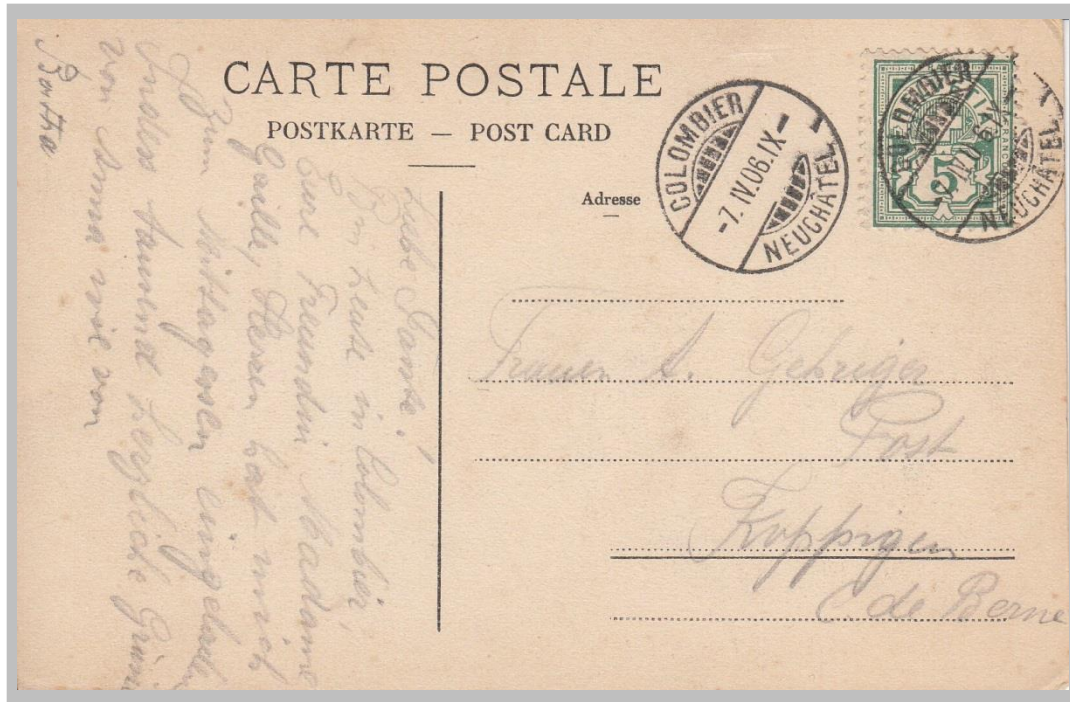 CARTE POSTALE
POSTKARTE — POST CARD
Adresse
COLOMBIER
-7. IV. 06. IX-
NEUCHÂTEL
COLOMBIER
NEUCHÂTEL
5
A. Gehriger
Post
Koppigen
C. de Berne
Liebe Tante,
Bin heute in Colombier,
Eure Freundin Madame
hat mich
Zum Mittagessen eingeladen
tausend herzliche
von Anna wie von
Bertha